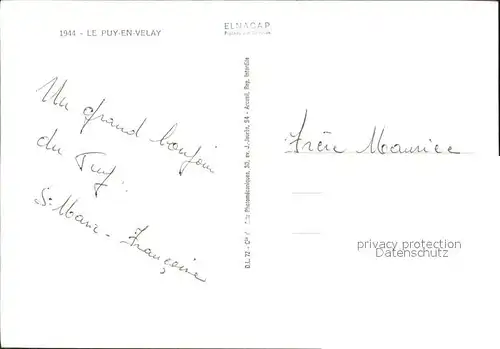 1944 - LE PUY-EN-VELAY
ELNAGAP
Un grand bonjour
du Puy.
Sr Marie-Françoise
D.L. 72 - Cie Arts Photomécaniques, 50, av. J.-Jaurès, 94 - Arcueil, Rep. Interdite
Frère Maurice
privacy protection
Datenschutz